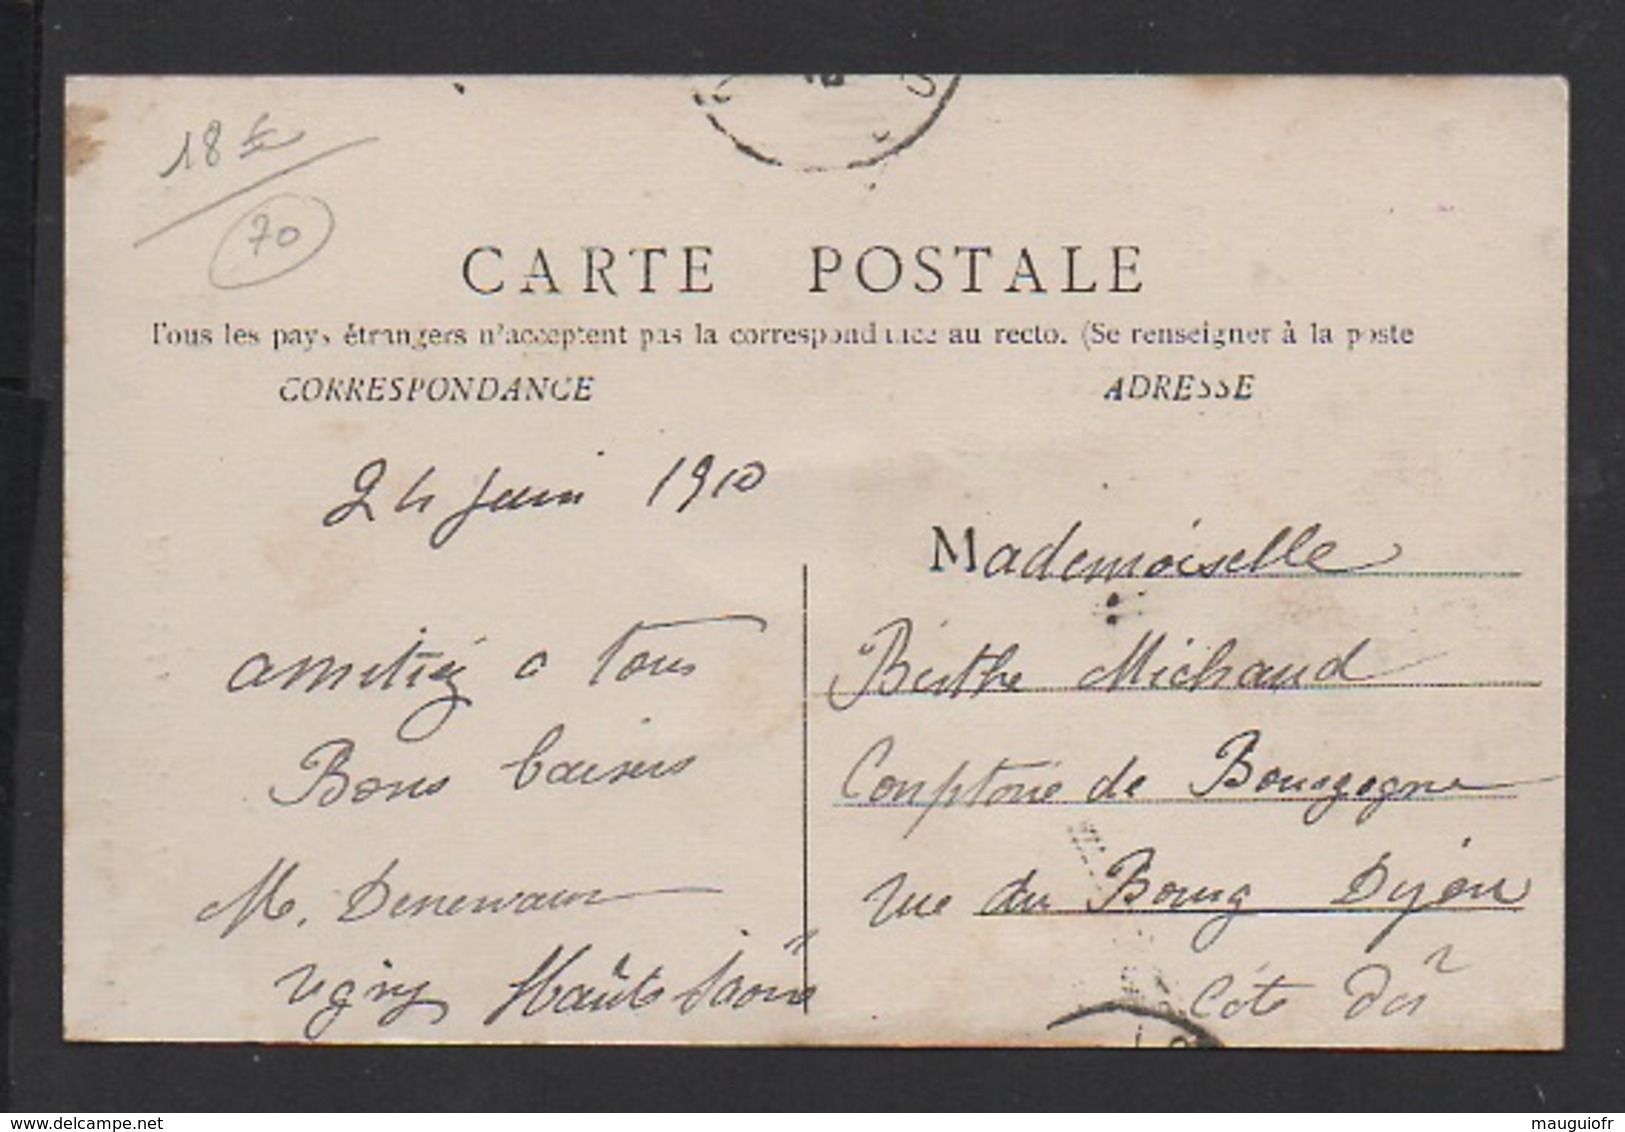 18 fr
70
CARTE POSTALE
Tous les pays étrangers n'acceptent pas la correspondance au recto. (Se renseigner à la poste
CORRESPONDANCE
ADRESSE
24 juin 1910
amitiés a tous
Bons baisers
M.
Haute Saône
Mademoiselle
Berthe Michaud
Comptoir de Bourgogne
rue du Bourg Dijon
Côte d'Or
delcampe.net
mauguiofr